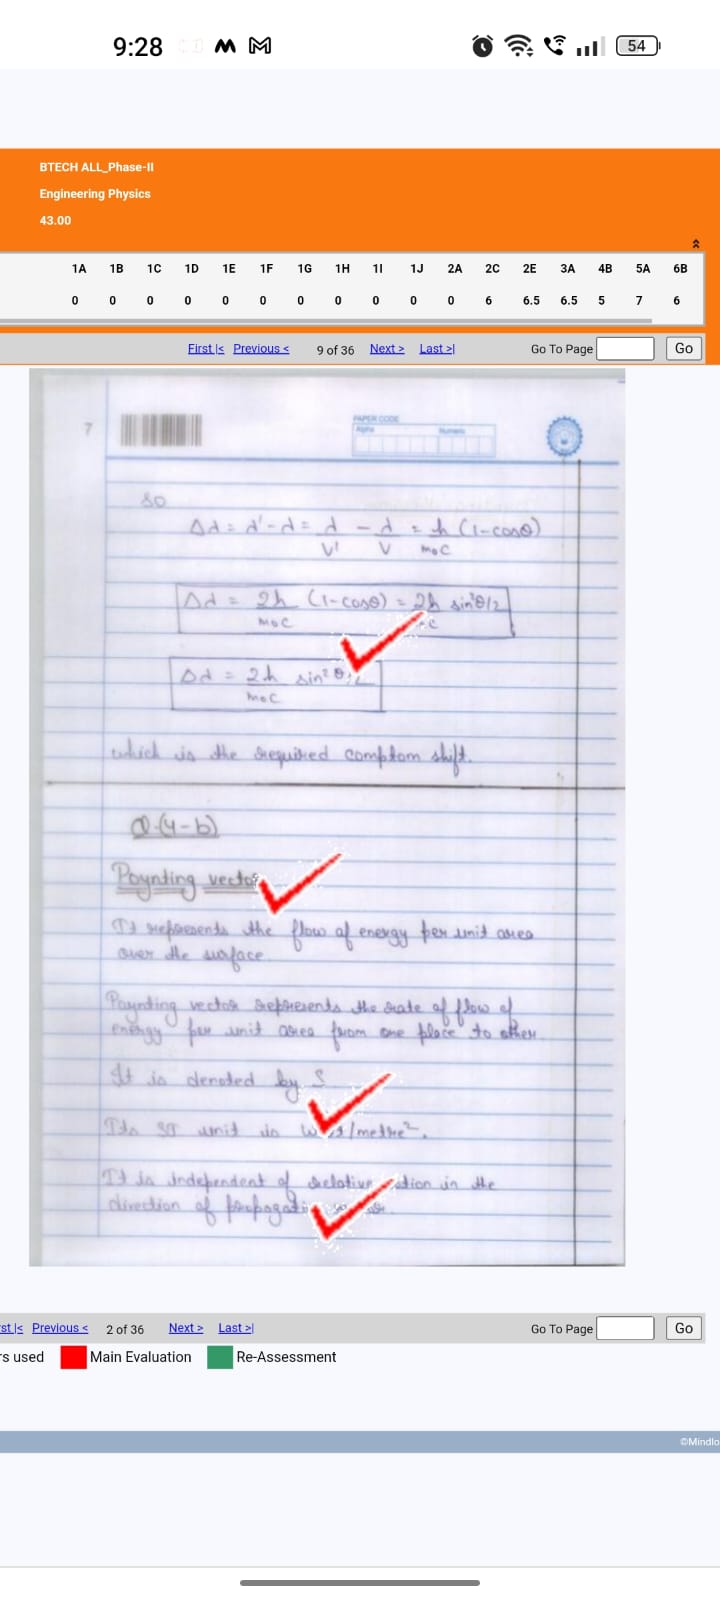 9:28
54
BTECH ALL_Phase-II
Engineering Physics
43.00
1A 1B 1C 1D 1E 1F 1G 1H 1I 1J 2A 2C 2E 3A 4B 5A 6B
0 0 0 0 0 0 0 0 0 0 0 6 6.5 6.5 5 7 6
First |< Previous < 9 of 36 Next > Last >| Go To Page Go
7
PAPER CODE
Alpha Numeric
so
Δd = d' - d = d/v' - d/v = h/m₀c (1-cosθ)
Δd = 2h/m₀c (1-cosθ) = 2h sin²θ/2
Δd = 2h/m₀c sin²θ/2
which is the required comptom shift.
Q.(4-b)
Poynting vector
It represents the flow of energy per unit area
over the surface
Poynting vector represents the rate of flow of
energy per unit area from one place to other.
It is denoted by S
Its SI unit is /metre².
It is independent of relative in the
direction of
st |< Previous < 2 of 36 Next > Last >| Go To Page Go
rs used Main Evaluation Re-Assessment
©Mindlo